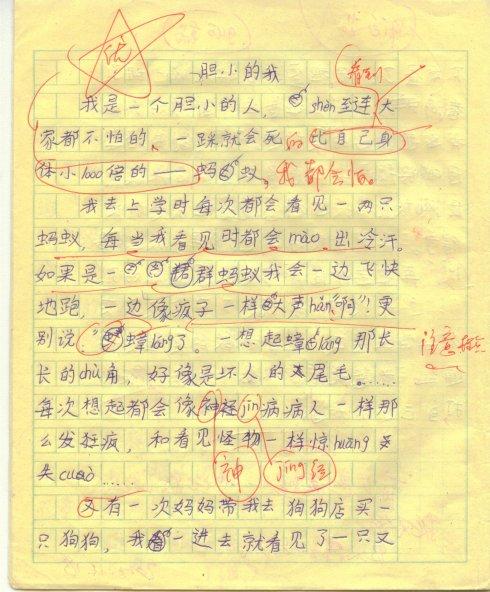 优
胆小的我
看到
我是一个胆小的人，shèn至连大
家都不怕的、一踩就会死的比自己身
体小1000倍的——蚂蚁。我都会怕。
我去上学时每次都会看见一两只
蚂蚁，每当我看见时都会mào出冷汗。
如果是一群蚂蚁我会一边飞快
地跑，一边像疯子一样大声hǎn"啊"！更
别说"蟑láng了。一想起蟑láng那长
长的chù角，好像是坏人的尾毛。……
注意标点
每次想起都会像神经jīn病病人一样那
么发狂疯，和看见怪物一样惊huāng
失cuò……
神 jīng 经
又有一次妈妈带我去狗狗店买一
只狗狗，我一进去就看见了一只又